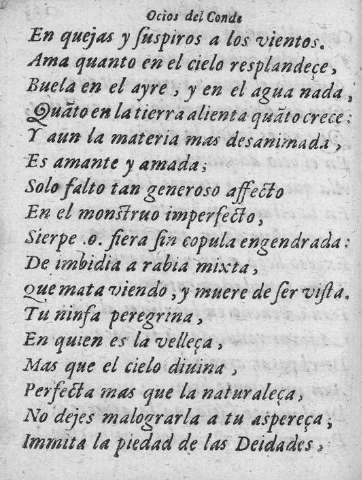 Ocios del Conde
En quejas y ſuspiros a los vientos.
Ama quanto en el cielo resplandeçe,
Buela en el ayre, y en el agua nada,
Quãto en la tierra alienta quãto crece:
Y aun la materia mas desanimada,
Es amante y amada;
Solo falto tan generoso affecto
En el monstruo imperfecto,
Sierpe .o. fiera ſin copula engendrada:
De imbidia a rabia mixta,
Que mata viendo, y muere de ſer vista.
Tu ninfa peregrina,
En quien es la velleça,
Mas que el cielo diuina,
Perfecta mas que la naturaleça,
No dejes malograrla a tu aspereça;
Immita la piedad de las Deidades,